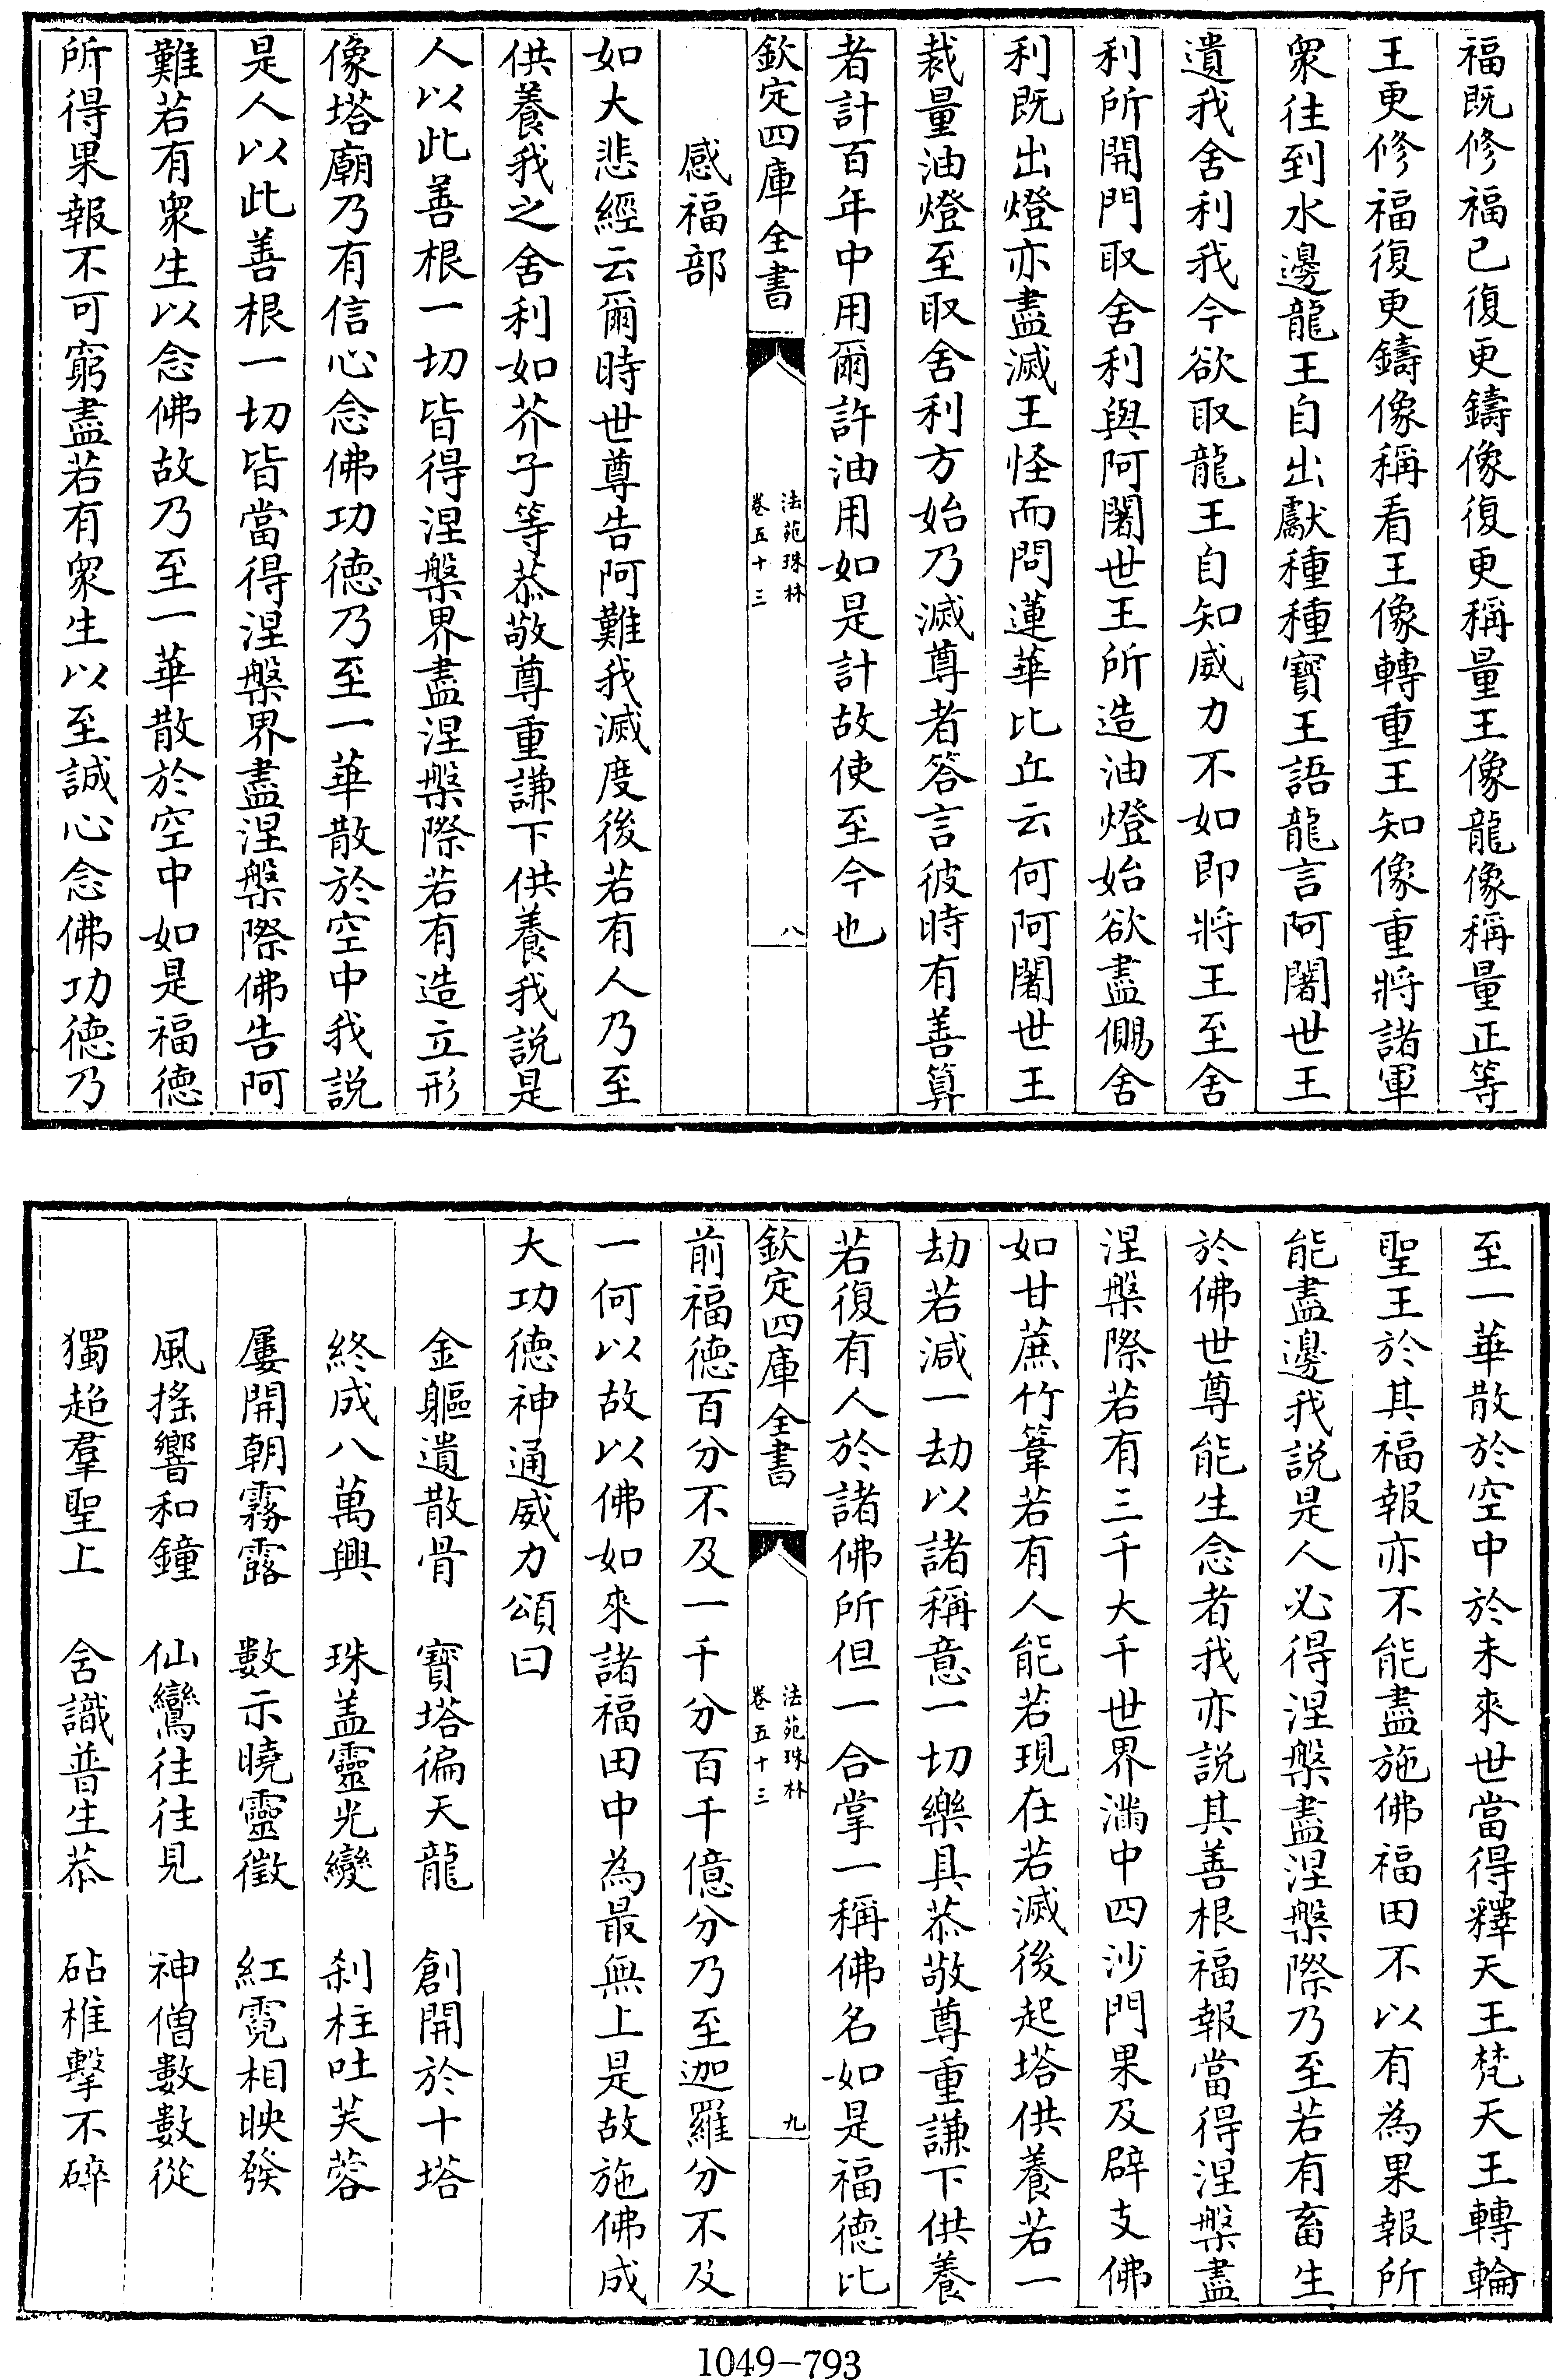 福既修福已復更鑄像復更稱量王像龍像稱量正等
王更修福復更鑄像稱看王像轉重王知像重將諸軍
衆往到水邊龍王自出獻種種寶王語龍言阿闍世王
遺我舍利我今欲取龍王自知威力不如即將王至舍
利所開門取舍利與阿闍世王所造油燈始欲盡儩舍
利既出燈亦盡滅王怪而問蓮華比丘云何阿闍世王
裁量油燈至取舍利方始乃滅尊者答言彼時有善算
者計百年中用爾許油用如是計故使至今也
欽定四庫全書
法苑珠林
卷五十三
八
感福部
如大悲經云爾時世尊告阿難我滅度後若有人乃至
供養我之舍利如芥子等恭敬尊重謙下供養我説是
人以此善根一切皆得涅槃界盡涅槃際若有造立形
像塔廟乃有信心念佛功德乃至一華散於空中我説
是人以此善根一切皆當得涅槃界盡涅槃際佛告阿
難若有衆生以念佛故乃至一華散於空中如是福德
所得果報不可窮盡若有衆生以至誠心念佛功德乃
至一華散於空中於未來世當得釋天王梵天王轉輪
聖王於其福報亦不能盡施佛福田不以有為果報所
能盡邊我説是人必得涅槃盡涅槃際乃至若有畜生
於佛世尊能生念者我亦説其善根福報當得涅槃盡
涅槃際若有三千大千世界滿中四沙門果及辟支佛
如甘蔗竹葦若有人能若現在若滅後起塔供養若一
劫若減一劫以諸稱意一切樂具恭敬尊重謙下供養
若復有人於諸佛所但一合掌一稱佛名如是福德比
欽定四庫全書
法苑珠林
卷五十三
九
前福德百分不及一千分百千億分乃至迦羅分不及
一何以故以佛如來諸福田中為最無上是故施佛成
大功德神通威力頌曰
金軀遺散骨　寶塔徧天龍　創開於十塔
終成八萬興　珠盖靈光變　刹柱吐芙蓉
屢開朝霧露　數示曉靈徵　紅霓相映發
風搖響和鐘　仙鸞往往見　神僧數數從
獨超羣聖上　含識普生恭　砧椎擊不碎
1049-793